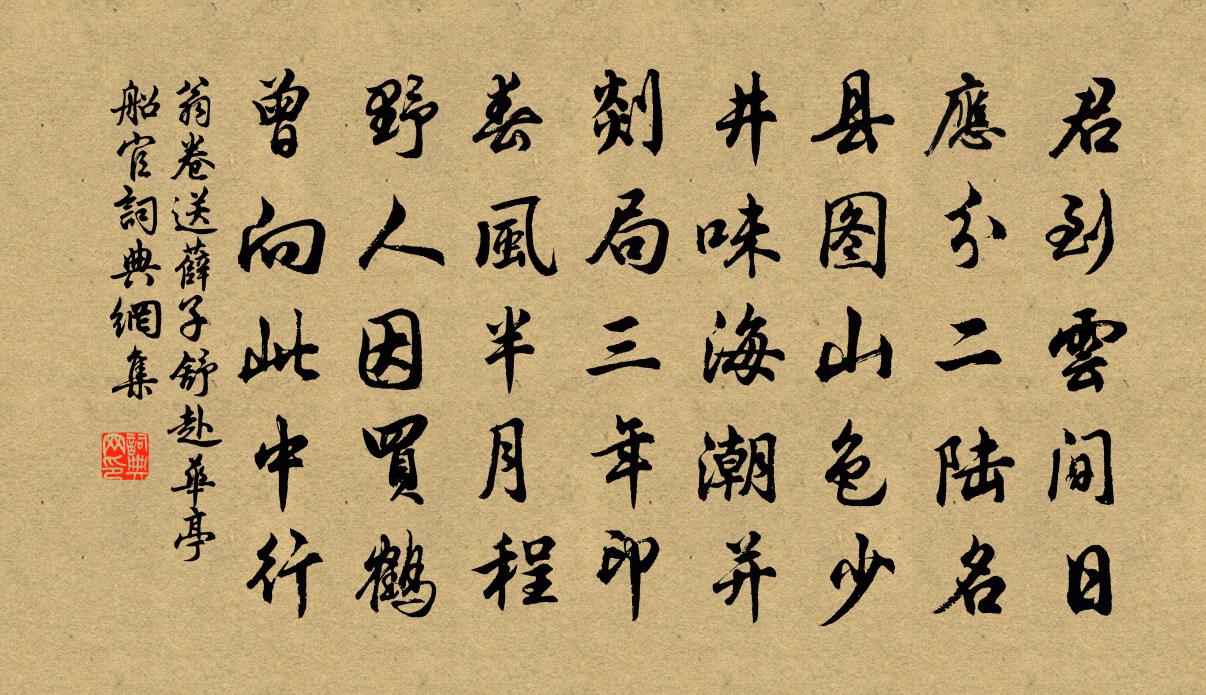 君到雲间日
應分二陆名
县图山色少
井味海潮并
剡局三年印
春風半月程
野人因買鶴
曾向此中行
翁卷送薛子舒赴華亭
船官詞典網集
詞典網印